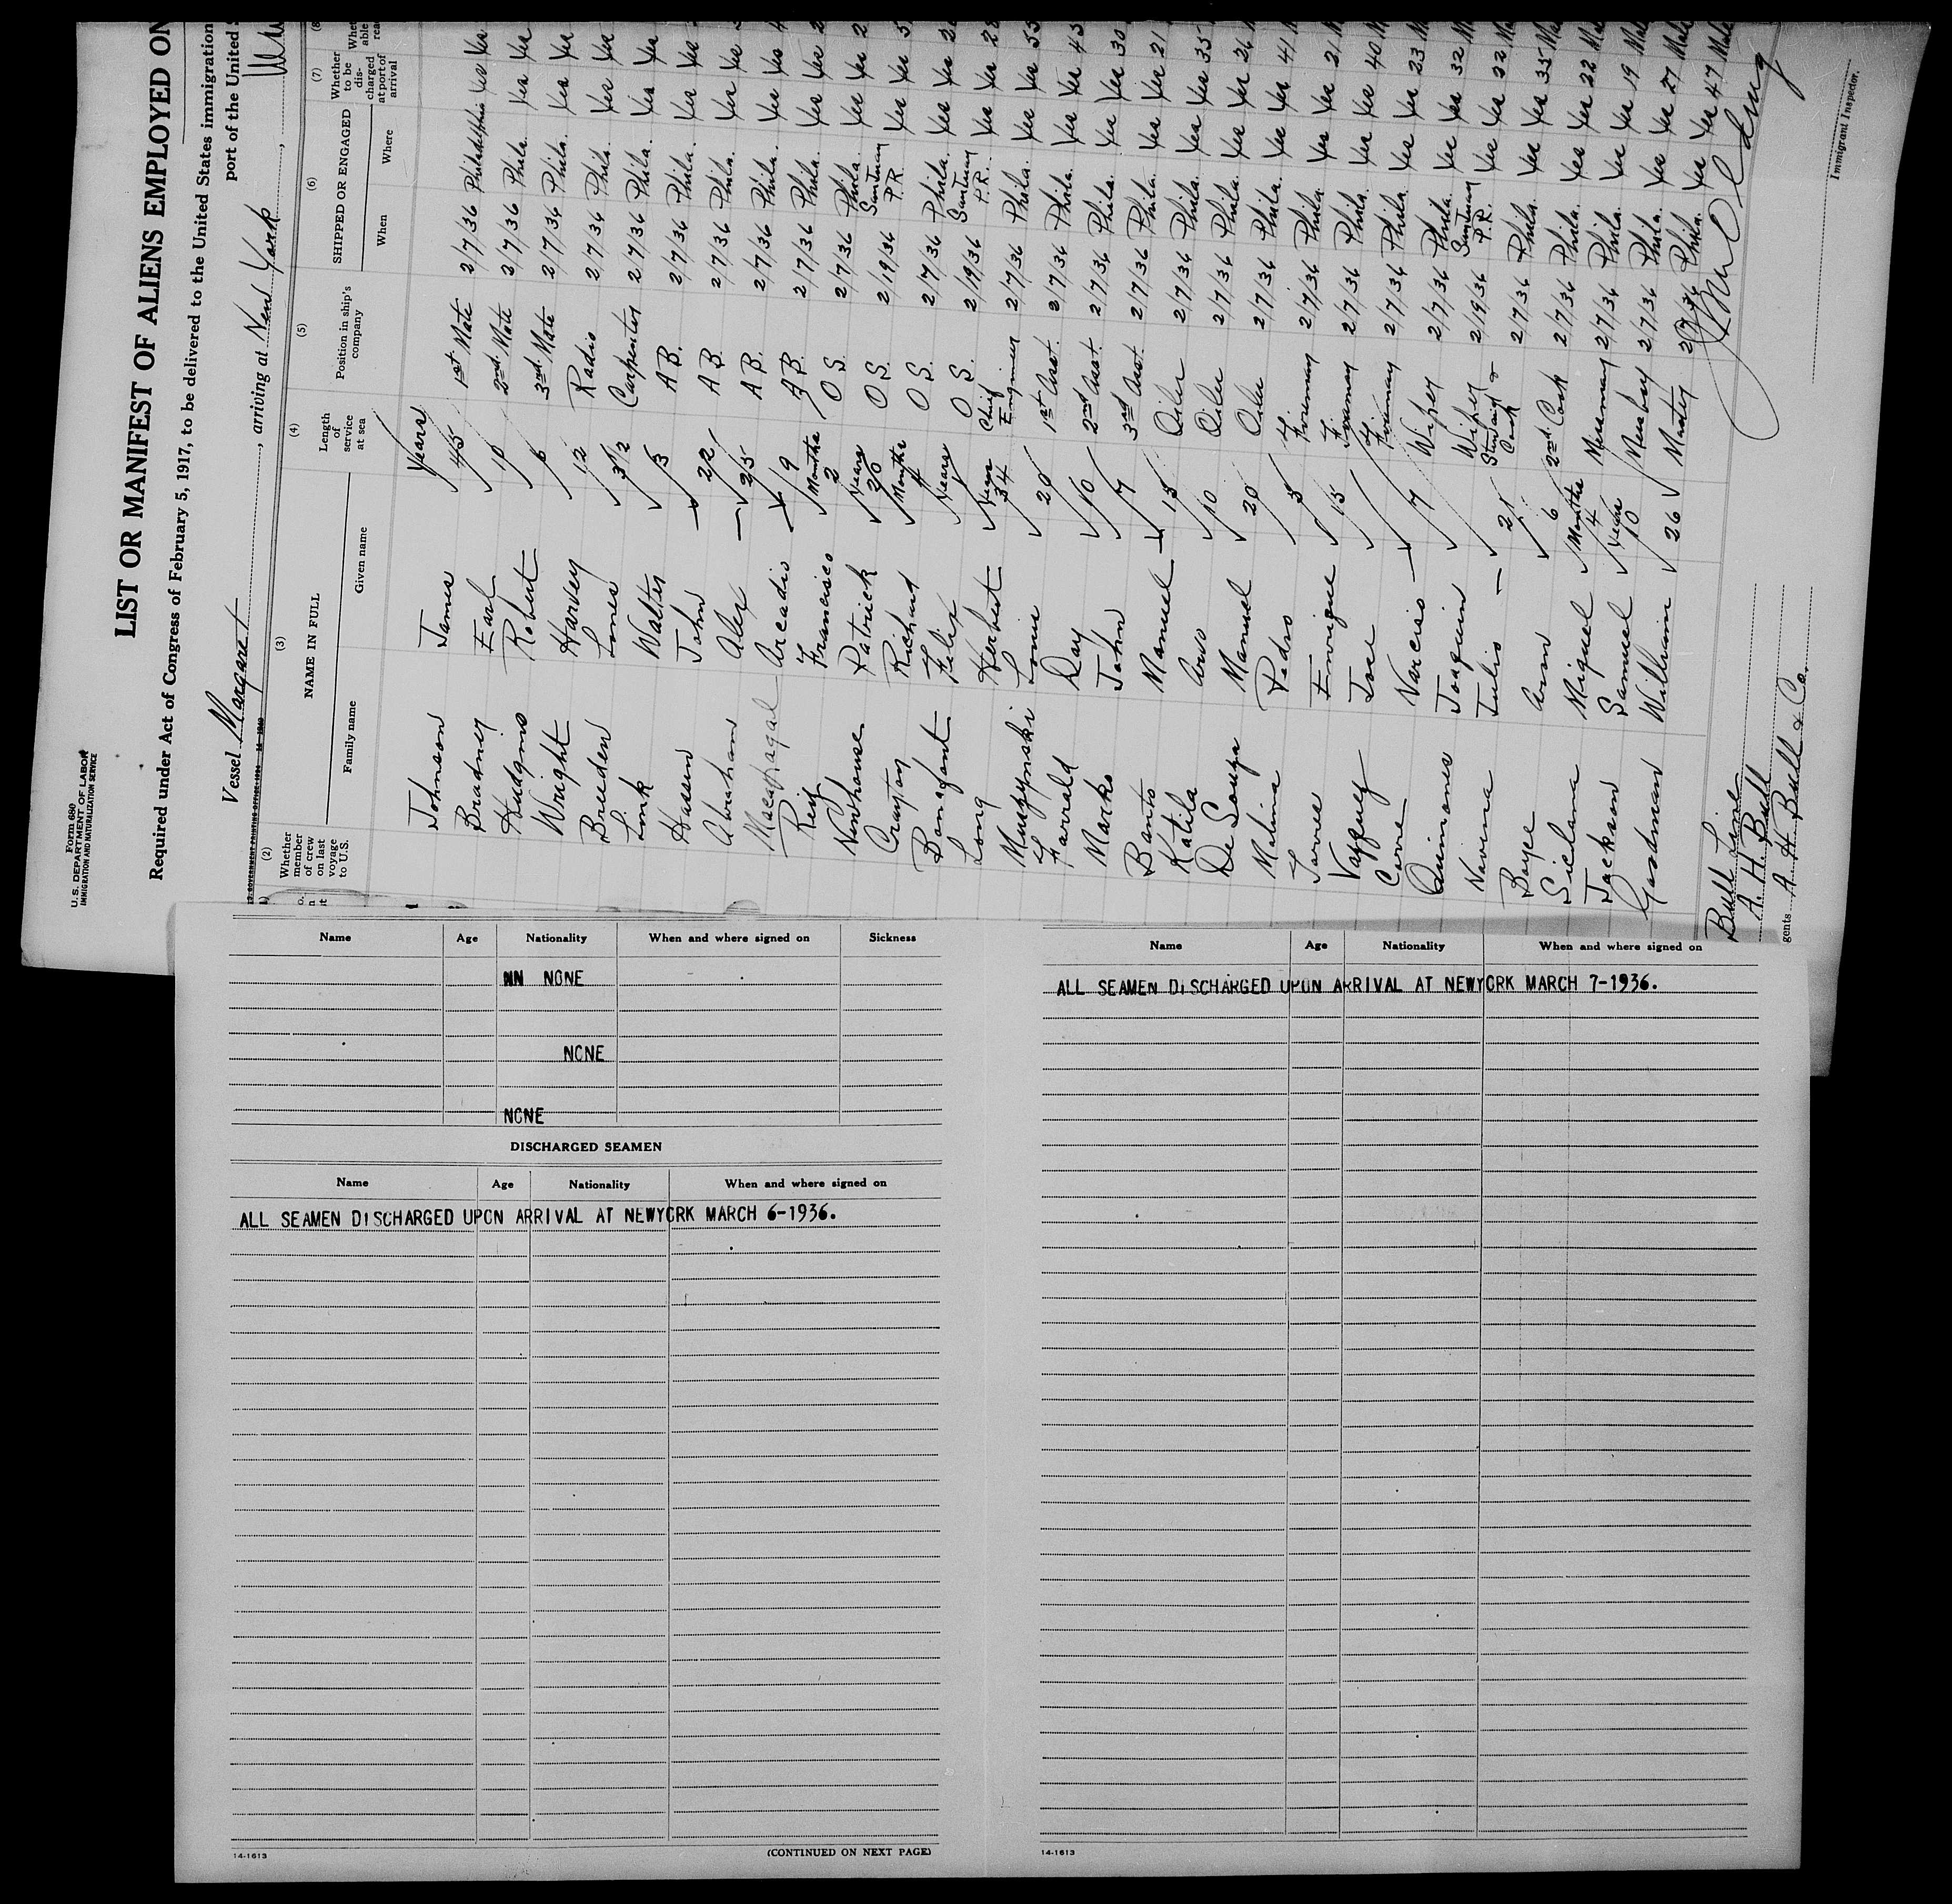 Form 680
U. S. DEPARTMENT OF LABOR
IMMIGRATION AND NATURALIZATION SERVICE
LIST OR MANIFEST OF ALIENS EMPLOYED ON
Required under Act of Congress of February 5, 1917, to be delivered to the United States immigration
port of the United S
Vessel Margaret, arriving at New York,
(2) (3) (4) (5) (6) (7) (8)
Whether member of crew on last voyage to U.S. NAME IN FULL Length of service at sea Position in ship's company SHIPPED OR ENGAGED Whether to be discharged at port of arrival
Family name Given name When Where
Years
Johnson James 45 1st Mate 2/7/36 Philadelphia Yes Yes
Bradney Earl 10 2nd Mate 2/7/36 Phila. Yes Yes
Hudgins Robert 6 3rd Mate 2/7/36 Phila. Yes Yes
Wright Harvey 12 Radio 2/7/36 Phila. Yes Yes
Breeden Jones Carpenter 2/7/36 Phila. Yes Yes
Link Walter 3 A B. 2/7/36 Phila. Yes Yes
Hassen John 22 A B. 2/7/36 Phila. Yes Yes
Abraham Alex 25 A B. 2/7/36 Phila. Yes Yes
Macapagal Arcadio 9 A B. 2/7/36 Phila. Yes Yes
Reis Francisco Months 2 O S. 2/7/36 Phila. Yes Yes
Northouse Patrick Years 20 O S. 2/19/36 San Juan P.R. Yes Yes
Craytor Richard Months O S. 2/7/36 Phila. Yes Yes
Bonafont Felix Years O S. 2/19/36 San Juan P.R. Yes Yes
Long Herbert Years 34 Chief Engineer 2/7/36 Phila. Yes Yes 55
Muszynski Louis 20 1st Asst. 2/7/36 Phila. Yes Yes 45
Farrald Ray 10 2nd Asst. 2/7/36 Phila. Yes Yes 30
Marks John 7 3rd Asst. 2/7/36 Phila. Yes Yes 21
Banto Manuel 15 Oiler 2/7/36 Phila. Yes Yes 35
Katila Arvo 10 Oiler 2/7/36 Phila. Yes Yes 26
De Souza Manuel 20 Oiler 2/7/36 Phila. Yes Yes 41
Molina Pedro 3 Fireman 2/7/36 Phila. Yes Yes 21
Torres Enrique 15 Fireman 2/7/36 Phila. Yes Yes 40
Vazquez Jose Fireman 2/7/36 Phila Yes Yes 23
Narciso 7 Wiper 2/7/36 Phila. Yes Yes 32
Quinones Joaquin Wiper 2/19/36 San Juan P.R. Yes Yes 22
Julio 21 Steward & Cook 2/7/36 Phila. Yes Yes 35
Ann 6 2nd Cook 2/7/36 Phila. Yes Yes 22
Siclana Miguel Months 4 Messman 2/7/36 Phila. Yes Yes 19
Jackson Samuel Years 10 Messboy 2/7/36 Phila. Yes Yes 27
William 26 Master 2/7/36 Phila. Yes Yes 47
Bull Line
A. H. Bull
gents A H Bull & Co.
Immigrant Inspector.
Name Age Nationality When and where signed on Sickness
NN NONE
NONE
NONE
DISCHARGED SEAMEN
Name Age Nationality When and where signed on
ALL SEAMEN DISCHARGED UPON ARRIVAL AT NEWYORK MARCH 6-1936.
14-1613
(CONTINUED ON NEXT PAGE)
Name Age Nationality When and where signed on
ALL SEAMEN DISCHARGED UPON ARRIVAL AT NEWYORK MARCH 7-1936.
14-1613